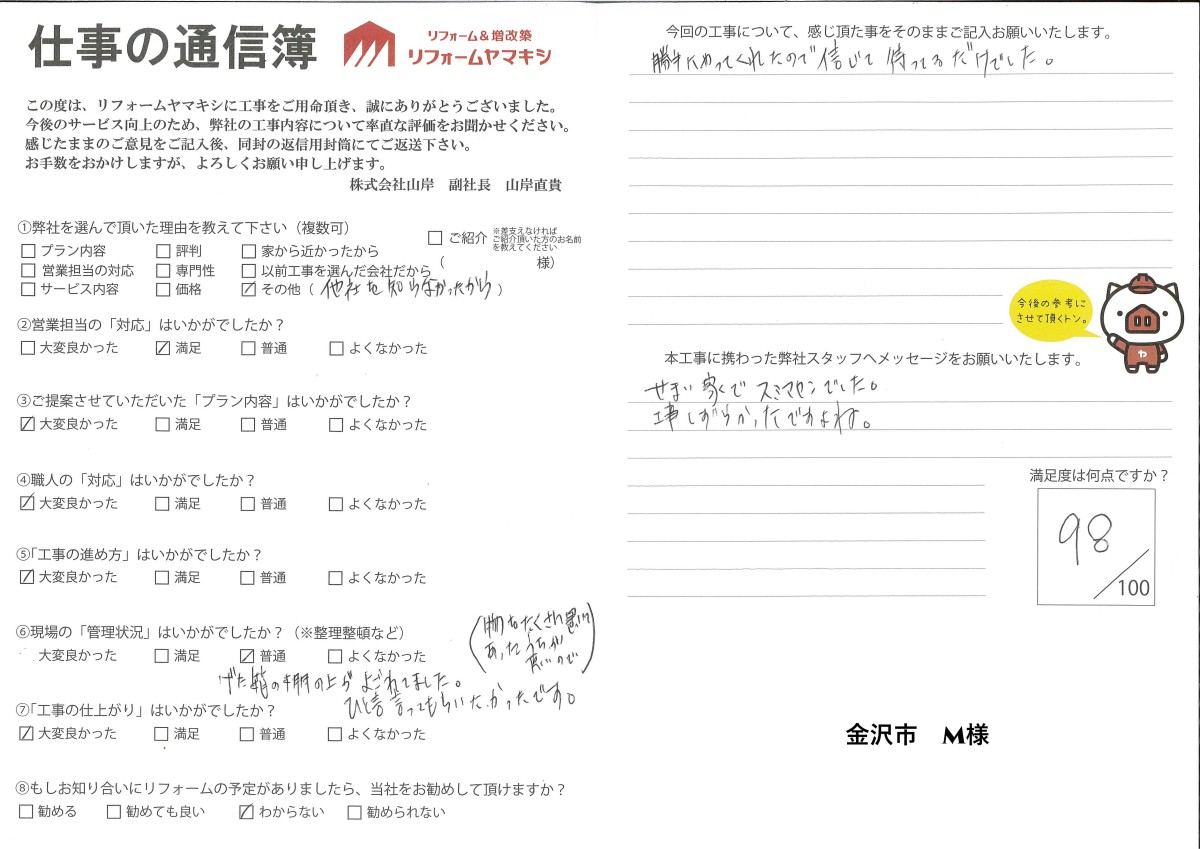 仕事の通信簿
リフォーム&増改築
リフォームヤマキシ
この度は、リフォームヤマキシに工事をご用命頂き、誠にありがとうございました。
今後のサービス向上のため、弊社の工事内容について率直な評価をお聞かせください。
感じたままのご意見をご記入後、同封の返信用封筒にてご返送下さい。
お手数をおかけしますが、よろしくお願い申し上げます。
株式会社山岸 副社長 山岸直貴
①弊社を選んで頂いた理由を教えて下さい（複数可）
□ プラン内容 □ 評判 □ 家から近かったから
□ 営業担当の対応 □ 専門性 □ 以前工事を選んだ会社だから
□ サービス内容 □ 価格 ☑ その他（他社を知らなかったから）
□ ご紹介 ※差支えなければ
ご紹介頂いた方のお名前
を教えてください
（ 様）
②営業担当の「対応」はいかがでしたか？
□ 大変良かった ☑ 満足 □ 普通 □ よくなかった
③ご提案させていただいた「プラン内容」はいかがでしたか？
☑ 大変良かった □ 満足 □ 普通 □ よくなかった
④職人の「対応」はいかがでしたか？
☑ 大変良かった □ 満足 □ 普通 □ よくなかった
⑤「工事の進め方」はいかがでしたか？
☑ 大変良かった □ 満足 □ 普通 □ よくなかった
⑥現場の「管理状況」はいかがでしたか？（※整理整頓など）
大変良かった □ 満足 ☑ 普通 □ よくなかった
（物をたくさん置いて
あったうちが
悪いので）
げた箱の棚の上がよごれてました。
ひと言言ってもらいたかったです。
⑦「工事の仕上がり」はいかがでしたか？
☑ 大変良かった □ 満足 □ 普通 □ よくなかった
⑧もしお知り合いにリフォームの予定がありましたら、当社をお勧めして頂けますか？
□ 勧める □ 勧めても良い ☑ わからない □ 勧められない
今回の工事について、感じ頂た事をそのままご記入お願いいたします。
勝手にやってくれたので信じて待ってるだけでした。
今後の参考に
させて頂くトン。
ヤ
本工事に携わった弊社スタッフへメッセージをお願いいたします。
せまい家でスミマセンでした。
工事しずらかったですよね。
満足度は何点ですか？
98
/100
金沢市 M様